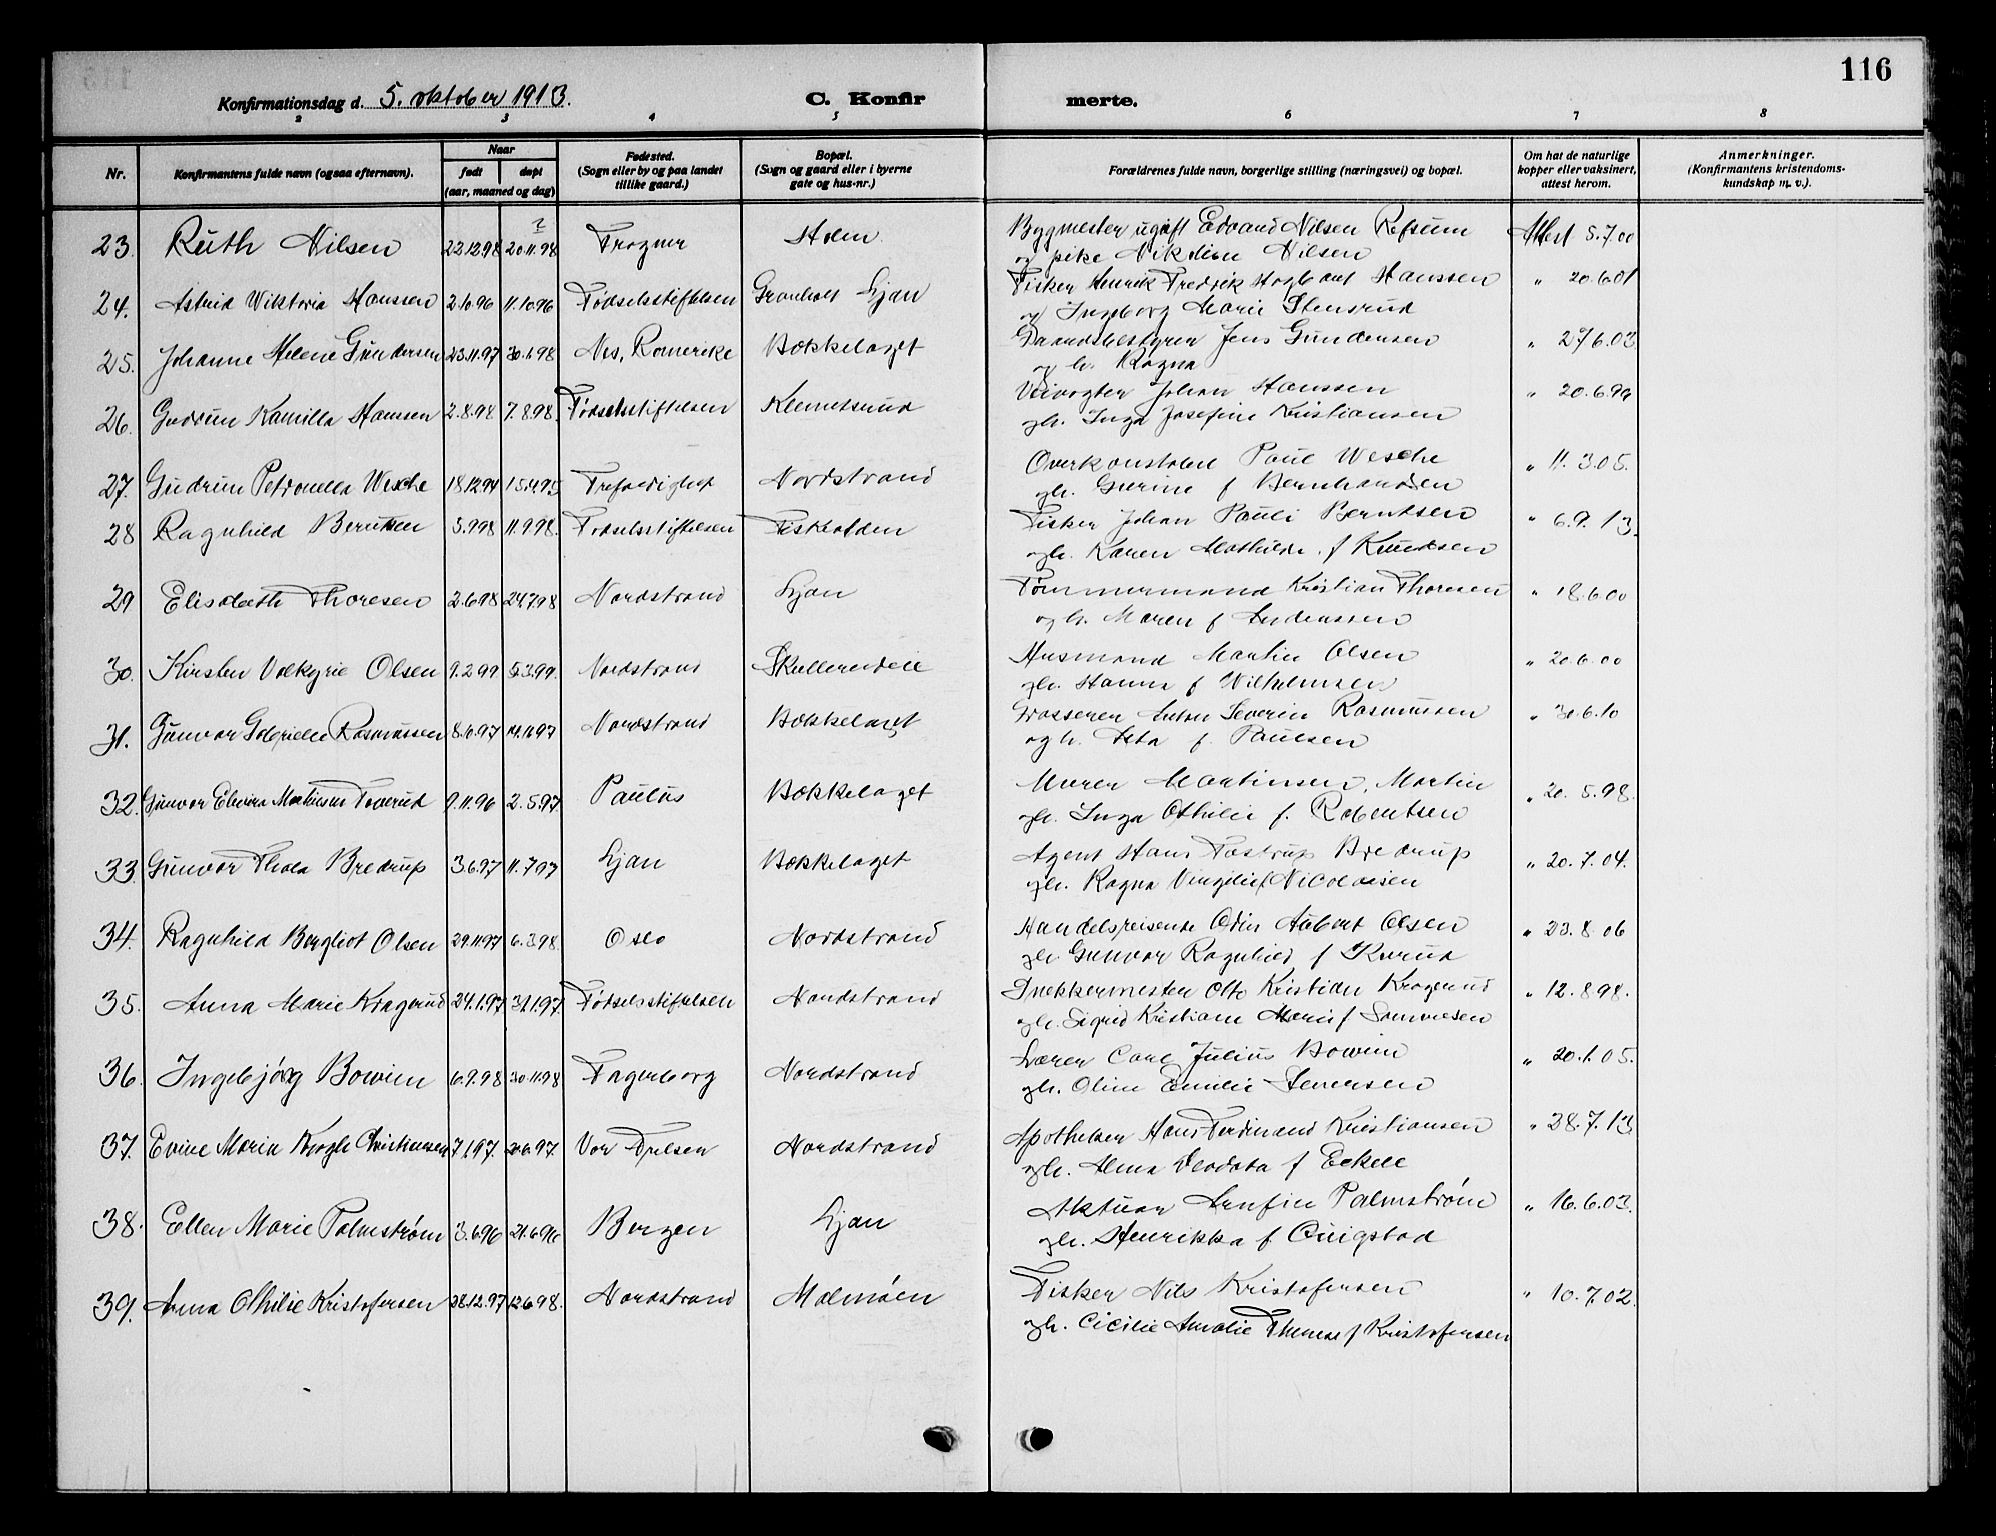 116
Konfirmationsdag d. 5. oktober 1913.
C. Konfir merte.
2 3 4 5 6 7 8
Nr.
Konfirmantens fulde navn (ogsaa efternavn).
Naar
født døpt
(aar, maaned og dag)
Fødested.
(Sogn eller by og paa landet
tillike gaard.)
Bopæl.
(Sogn og gaard eller i byerne
gate og hus-nr.)
Forældrenes fulde navn, borgerlige stilling (næringsvei) og bopæl.
Om hat de naturlige
kopper eller vaksinert,
attest herom.
Anmerkninger.
(Konfirmantens kristendoms-
kundskap m. v.).
23. Ruth Nilsen 22.12.98 20.11.98 ? Frogner Holm Bygmester ugift Edvard Nilsen Refsum Attest 5.7.00
og pike Nikoline Nilsen
24. Astrid Wiktoria Hanssen 2.10.96 11.10.96 Fødselsstiftelsen Granholt Ljan Fisker Henrik Fredrik Hanssen " 20.6.01
og Ingeborg Marie Stensrud
25. Johanne Helene Gundersen 23.11.97 30.1.98 Nes, Romerike Bækkelaget Gaardsbestyrer Jens Gundersen " 27.6.03
og h. Ragna
26. Gudrun Kamilla Hansen 2.8.98 7.8.98. Fødselsstiftelsen Klemetsrud Veivogter Johan Hanssen " 20.6.99
og h. Inga Josefine Kristiansen
27. Gudrun Petronella Wesche 18.12.94 15.4.95 Trefoldighet Nordstrand Overkonstabel Paul Wesche " 11.3.05.
og h. Gurine f Bernhardsen
28 Ragnhild Berntsen 3.9.98 11.9.98. Fødselsstiftelsen Fiskholden Fisker Johan Pauli Berntsen " 6.9.13.
og h. Karen Mathilde f Knudsen
29 Elisabeth Thoresen 2.6.98 24.7.98 Nordstrand Ljan Tømmermand Kristian Thoresen " 18.6.00
og h. Maren f Andreassen
30. Kirsten Valkyrie Olsen 9.2.99 5.3.99. Nordstrand Skullerudeie Husmand Martin Olsen " 20.6.00
og h. Hanna f Wilhelmsen
31. Gunvor Gabrielle Rasmussen 8.6.97 Nordstrand Bækkelaget Grosserer Anton Severin Rasmussen " 30.6.10
og h. Asta f. Paulsen
32. Gunvor Elvira Martinsen Toverud 9.11.96 2.5.97. Paulus Bækkelaget Murer Martinsen, Martin " 20.5.98.
og h. Inga Othilie f. Robertsen
33. Gunvor Thola Bredrup 3.6.97 11.7.97 Ljan Bækkelaget Agent Hans Tostrup Bredrup " 20.7.04.
og h. Ragna Vingilie f Nicolaisen
34. Ragnhild Bergliot Olsen 29.11.97 6.3.98. Oslo Nordstrand Handelsreisende Odin Aubert Olsen " 23.8.06
og h. Gunvor Ragnhild f Kurud
35. Anna Marie Kragerud 24.1.97 31.1.97. Fødselsstiftelsen Nordstrand Snekkermester Otto Kristian Kragerud " 12.8.98.
og h. Sigrid Kristiane Marie f Samuelsen
36. Ingebjørg Bowim 6.9.98 30.11.98 Fagerborg Nordstrand Lærer Carl Julius Bowim " 20.1.05.
og h. Oline Emilie Severesen
37. Evine Maria Krogh Christiansen 7.1.97. Vor Frelsers Nordstrand Apotheker Hans Ferdinand Kristiansen " 28.7.13.
og h. Alma Deodata f Eckell
38. Ellen Marie Palmstrøm 3.6.96 21.6.96 Bergen Ljan Aktuar Arnfin Palmstrøm " 16.6.03.
og h. Henrikka f Quigstad
39. Anna Othilie Kristofersen 28.12.97 12.6.98. Nordstrand Malmøen Fisker Nils Kristofersen " 10.7.02.
og h. Cicilie Amalie Therese f Kristofersen